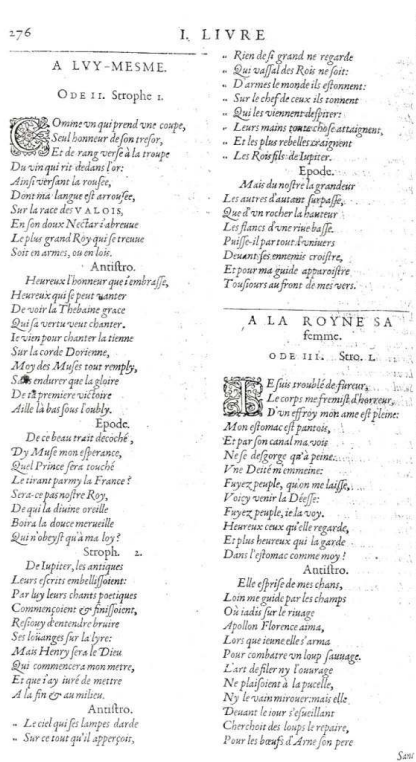 276
I. LIVRE
A LVY-MESME.
ODE II. Strophe 1.
COmme vn qui prend vne coupe,
Seul honneur de son tresor,
Et de rang verse à la troupe
Du vin qui rit dedans l'or:
Ainsi versant la rousée,
Dont ma langue est arrousée,
Sur la race des VALOIS,
En son doux Nectar i'abreuue
Le plus grand Roy qui se treuue
Soit en armes, ou en lois.
Antistro.
Heureux l'honneur que i'embrasse,
Heureux qui se peut vanter
De voir la Thebaine grace
Qui sa vertu veut chanter.
Ie vien pour chanter la tienne
Sur la corde Dorienne,
Moy des Muses tout remply,
Sans endurer que la gloire
De ta premiere victoire
Aille là bas sous l'oubly.
Epode.
De ce beau trait decoché,
Dy Muse mon esperance,
Quel Prince sera touché
Le tirant parmy la France?
Sera-ce pas nostre Roy,
De qui la diuine oreille
Boira la douce merueille
Qui n'obeyst qu'à ma loy?
Stroph. 2.
De Iupiter, les antiques
Leurs escrits embellissoient:
Par luy leurs chants poetiques
Commençoient & finissoient,
Resiouy d'entendre bruire
Ses loüanges sur la lyre:
Mais Henry sera le Dieu
Qui commencera mon metre,
Et que i'ay iuré de mettre
A la fin & au milieu.
Antistro.
" Le ciel qui ses lampes darde
" Sur ce tout qu'il apperçoit,
" Rien de si grand ne regarde
" Qui vassal des Rois ne soit:
" D'armes le monde ils estonnent:
" Sur le chef de ceux ils tonnent
" Qui les viennent despiter:
" Leurs mains toute chose attaignent,
" Et les plus rebelles craignent
" Les Rois fils de Iupiter.
Epode.
Mais du nostre la grandeur
Les autres d'autant surpasse,
Que d'vn rocher la hauteur
Les flancs d'vne riue basse.
Puisse-il par tout l'vniuers
Deuant ses ennemis croistre,
Et pour ma guide apparoistre
Tousiours au front de mes vers.
A LA ROYNE SA
femme.
ODE III. Stro. 1.
IE suis troublé de fureur,
Le corps me fremist d'horreur,
D'vn effroy mon ame est pleine:
Mon estomac est pantois,
Et par son canal ma vois
Ne se desgorge qu'à peine.
Vne Deité m'emmeine:
Fuyez peuple, qu'on me laisse,
Voicy venir la Déesse:
Fuyez peuple, ie la voy.
Heureux ceux qu'elle regarde,
Et plus heureux qui la garde
Dans l'estomac comme moy!
Antistro.
Elle esprise de mes chans,
Loin me guide par les champs
Où iadis sur le riuage
Apollon Florence aima,
Lors que ieune elle s'arma
Pour combatre vn loup sauuage.
L'art de filer ny l'ouurage
Ne plaisoient à la pucelle,
Ny le vain mirouer: mais elle
Deuant le iour s'esueillant
Cherchoit des loups le repaire,
Pour les bœufs d'Arne son pere
Sans